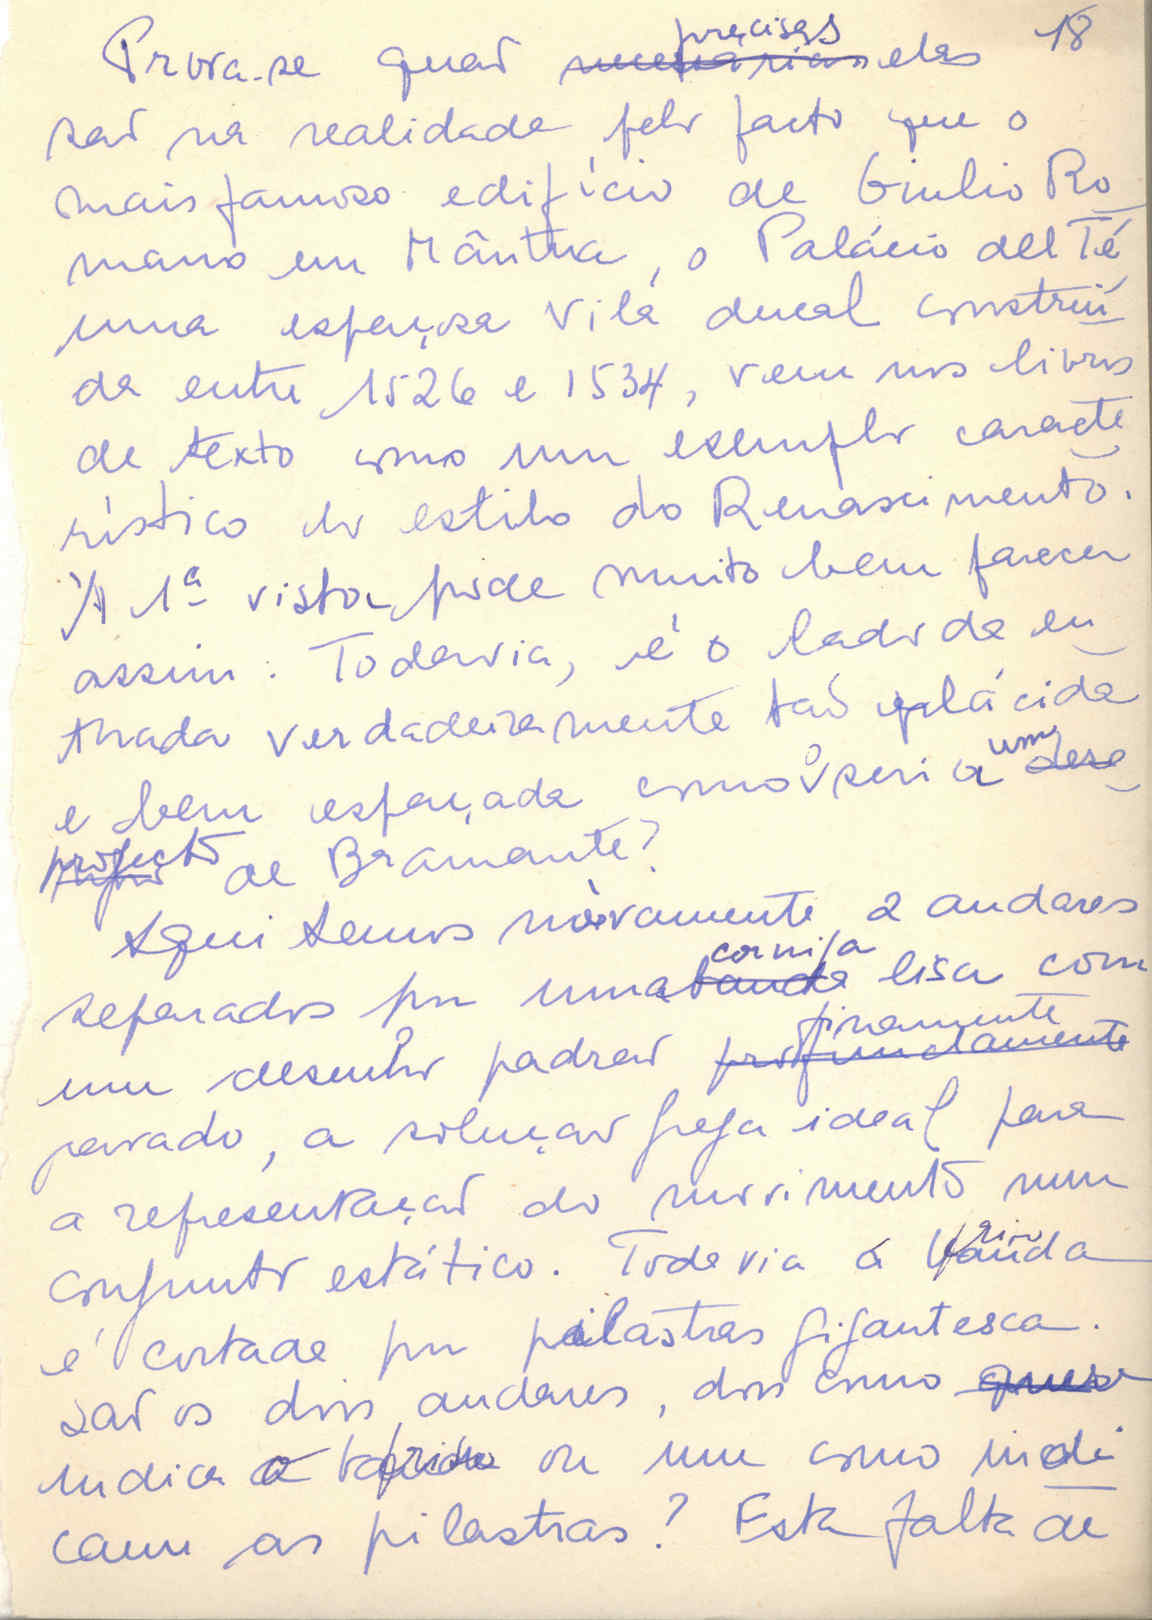 18
Prova-se quaõ precisas elas
saõ na realidade pelo facto que o
mais famoso edifício de Giulio Ro
mano em Mântua, o Palácio del Té
uma espaçosa vila ducal construi
da entre 1526 e 1534, vem nos livros
de texto como um exemplo caracte
rístico do estilo do Renascimento.
À 1ª vista pode muito bem parecer
assim. Todavia, é o lado da en
trada verdadeiramente taõ plácida
e bem espaçada como o seria um dese
projecto de Bramante?
Aqui temos nòvamente 2 andares
separados por uma banda cornija lisa com
um desenho padraõ profundamente finamente
gravado, a soluçaõ grega ideal para
a representaçaõ do movimento num
conjunto estático. Todavia a banda
é cortada por pilastras gigantesca.
Saõ os dois andares, dois como
indica o friso ou um como indi
cam as pilastras? Esta falta de